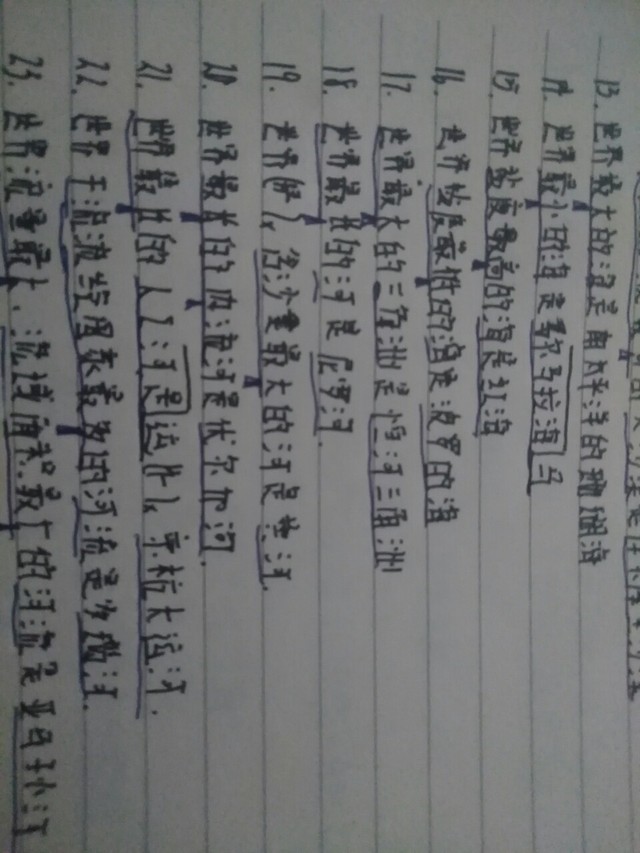 13. 世界最大的海是南太平洋的珊瑚海
14. 世界最小的海是马尔马拉海
15. 世界盐度最高的海是红海
16. 世界盐度最低的海是波罗的海
17. 世界最大的三角洲是恒河三角洲
18. 世界最长的河是尼罗河.
19. 世界 含沙量最大的河是黄河.
20. 世界最长的内流河是伏尔加河.
21. 世界最长的人工河是运 京杭大运河.
22. 世界干流流经国家最多的河流是多瑙河.
23. 世界流量最大、流域面积最广的河流是亚马孙河